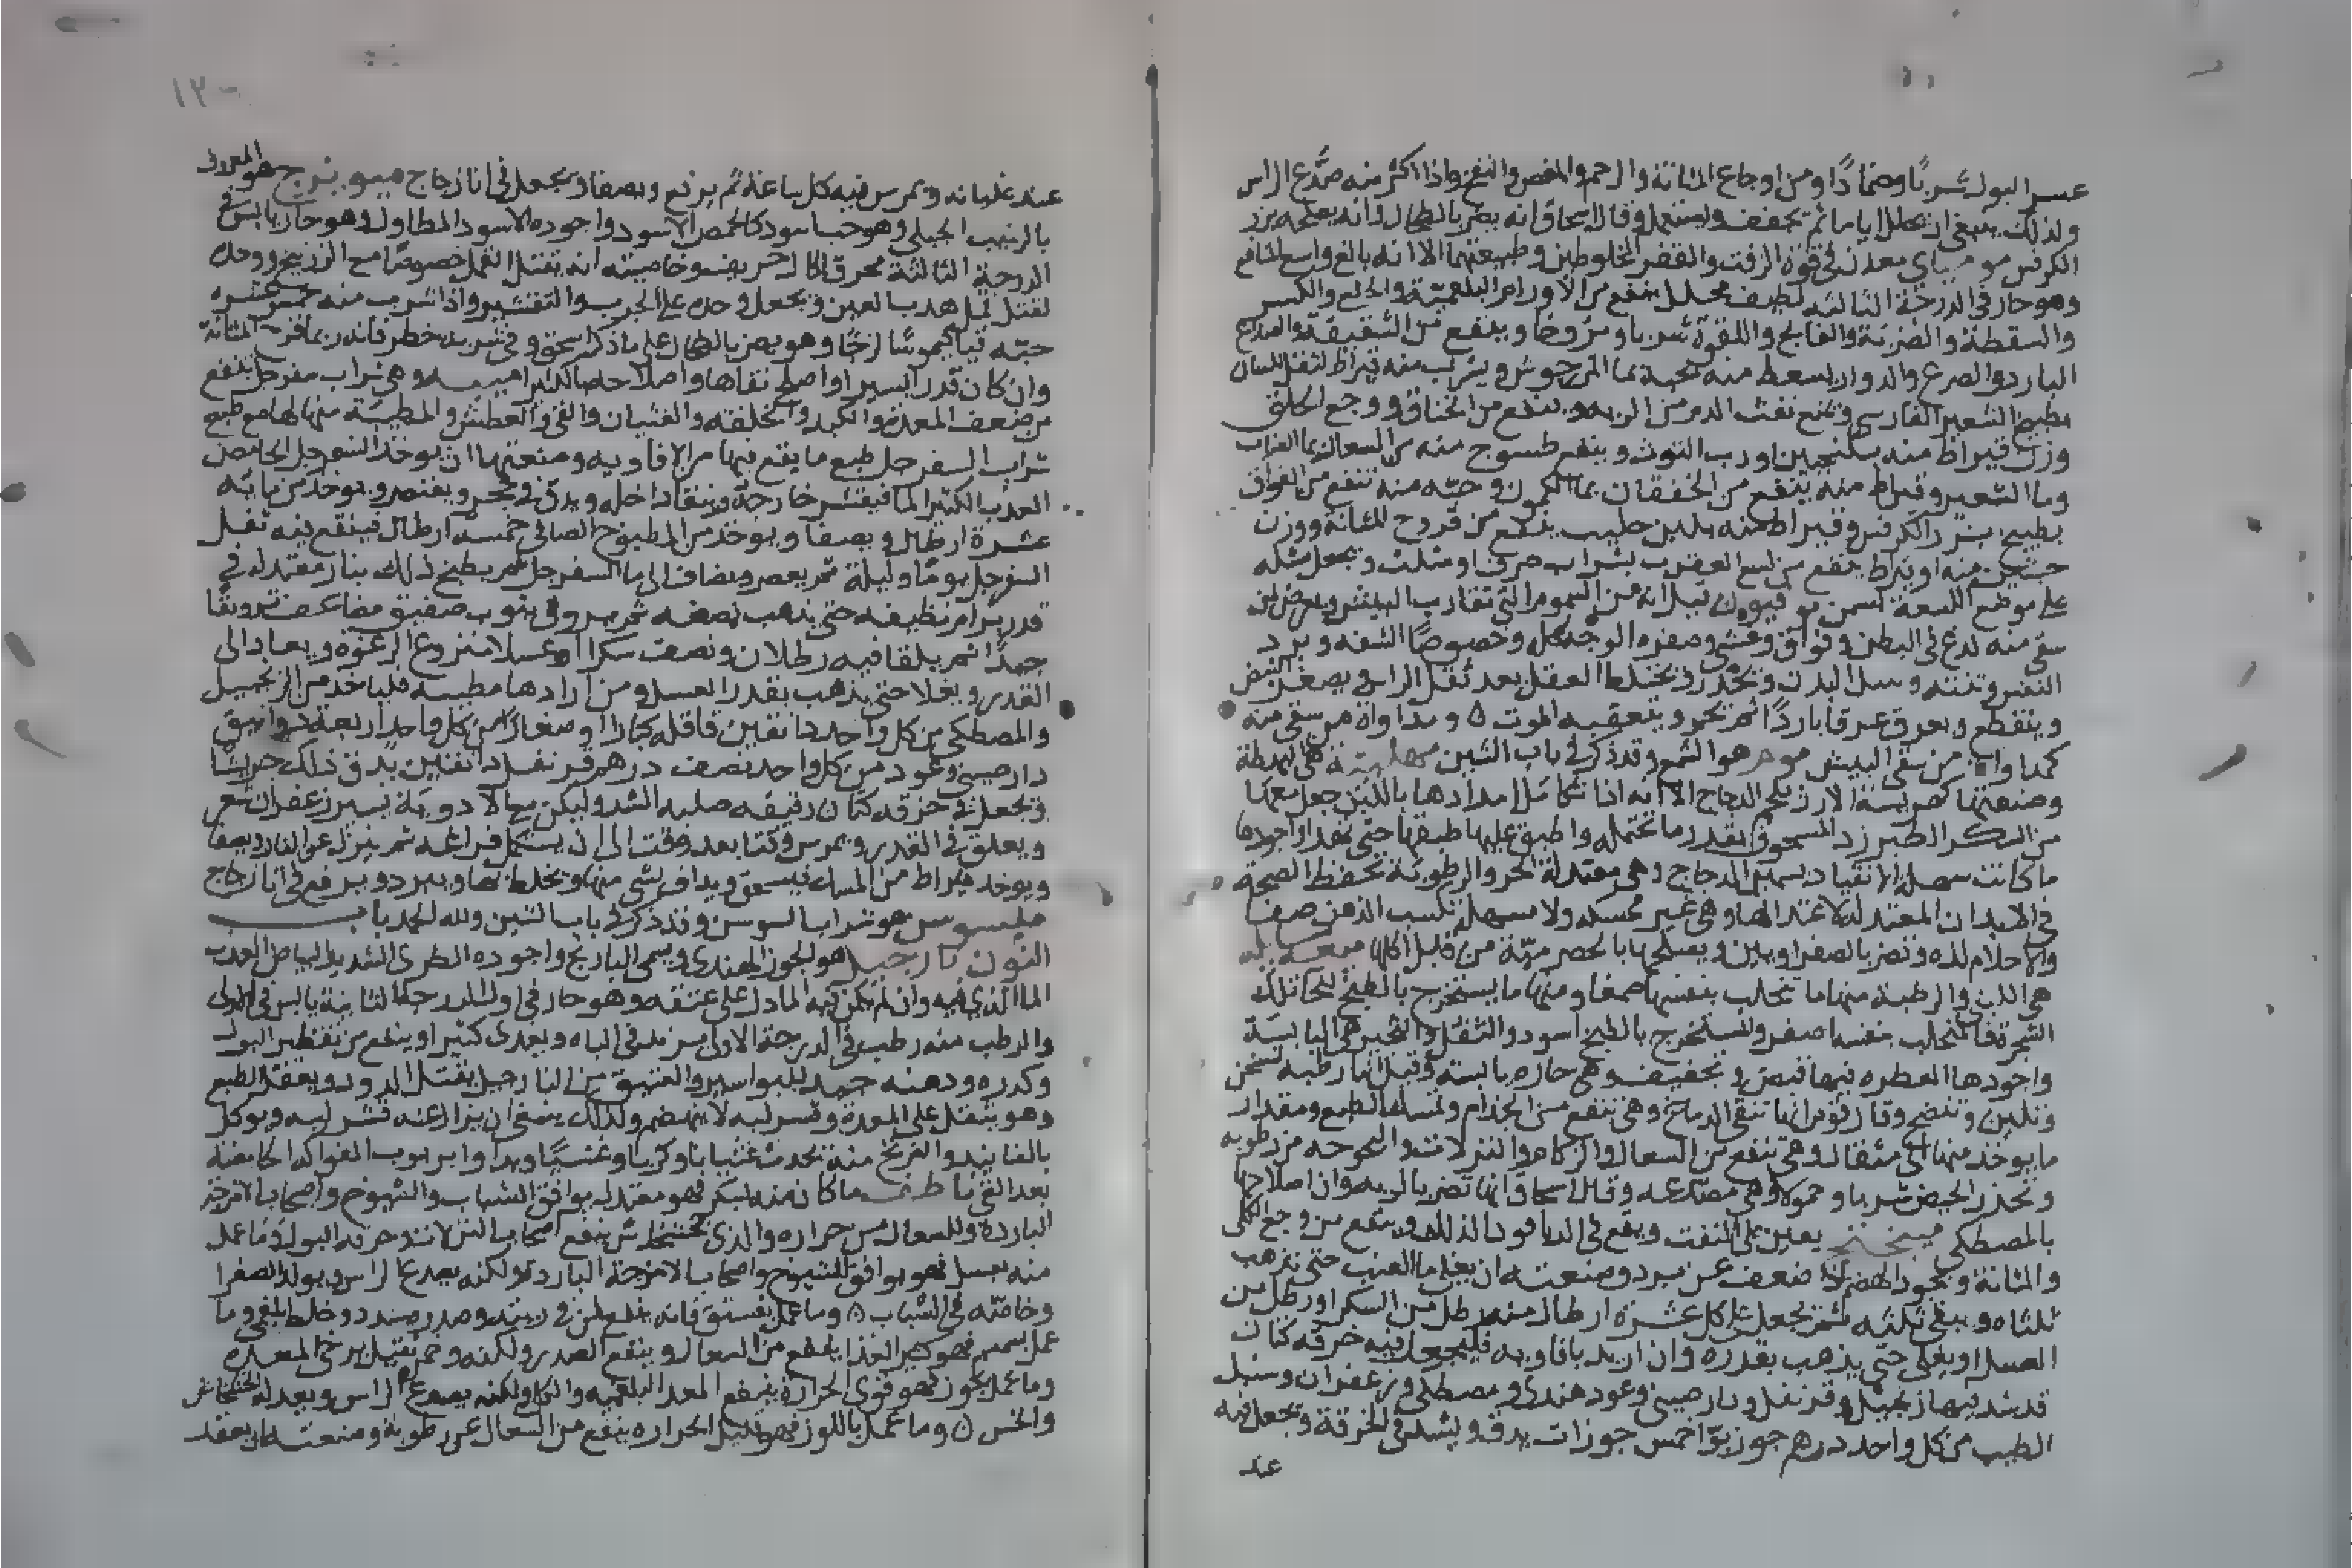 عسر البول شربًا وضمادًا ومن اوجاع المثانة والرحم والمغص والنفخ واذا اكثر منه صدَّع الراس
ولذلك ينبغي ان يخلل اياما ثم تجفف ويستعمل وقال اسحاق انه يضر بالطحال وانه يصلحه بزر
الكرفس موميباي معدن في قوة الزفت والقفر المخلوطين وطبيعتهما الا انه بالغ واسع المنافع
وهو حار في الدرجة الثالثه لطيف محلل ينفع من الاورام البلغمية والخلع والكسر
والسقطة والضربة والفالج واللقوة شربا ومروخا وينفع من الشقيقة والصداع
البارد والصرع والدوار يسعط منه بحبة بما المرزجوش ويشرب منه قيراط لثقل اللسان
بطبيخ الشعير الفارسي ويمنع نفث الدم من الريه وينفع من الخناق ووجع الحلق
وزن قيراط منه بسكنجبين او رب التوت وينفع طسوج منه من السعال بما العناب
وما الشعير وقيراط منه ينفع من الخفقان بما الكمون وحبه منه تنفع من الفواق
بطبيخ بزر الكرفس وقيراط منه بلبن حليب ينفع من قروح المثانة ووزن
منه او قيراط ينفع من لسع العقرب بشراب صرف او مثلث ويجعل مثله
على موضع اللسعة بسمن قيل انه من السموم التي تقارب البيش ويعرض لمن
سقي منه لدغ في البطن وفواق وغشي وصفرة الوجه كله وخصوصًا الشفه وبرد
النفس ونتنه وسل البدن وتخدر ويختلط العقل بعد ثقل الراس ويصغر النبض
وينقطع ويعرق عرقا باردًا ثم تحر ويتعقبه الموت ٥ ومداواة من سقي منه
كمداواة من سقي البيش موم هو الشمع وقد ذكر في باب الشين مهلبية هي البهطة
وصنعتها كهريسة الارز بلحم الدجاج الا انه اذا تكامل امدادها باللبن جعل معها
من السكر الطبرزد المسحوق بقدر ما تحتمله واطبق عليها طبقها حتى تهدا واجودها
ما كانت سهلة الانقياد بسمين الدجاج وهي معتدلة الحر والرطوبة تحفظ الصحة
في الابدان المعتدله لاعتدالها وهي غير ممسكه ولا مسهلة تكسب الذهن صفا
والاحلام لذه وتضر بالصفراويين ويصلحها بالحصرمية من قبل اكلها ميعه سايله
هي اللبن والرطبة منها ما يتحلب بنفسه صمغا ومنها ما يستخرج بالطبخ لحا تلك
الشجرة فالمتحلب بنفسه اصفر والمستخرج بالطبخ اسود والثفل والثخين هي اليابسة
واجودها العطره فيها قبض وتجفيف وهي حاره يابسه وقيل انها رطبه تسخن
وتلين وتنضج وقال قوم انها تنقي الدماغ وهي تنفع من الجذام وتمسك الطبع ومقدار
ما يوخذ منها الى مثقال وهي تنفع من السعال والزكام والنزلات والبحوحه من رطوبه
وتحدر الحيض شربا وحمولا وهي مصدعه وقال اسحاق انها تضر بالريه وان اصلاحها
بالمصطكي ميبختج يعين على النفث ويقع في الدياقودا لذلك وينفع من وجع الكلى
والمثانة ويجود الهضم اذا ضعف عن برد وصنعته ان يغلي ما العنب حتى يذهب
ثلثاه ويبقى ثلثه ثم يجعل على كل عشره ارطال منه رطل من السكر او رطل من
العسل ويغلى حتى يذهب بقدره وان اريد بافاويه فليجعل فيه خرقه كتان
قد شد فيها زنجبيل وقرنفل ودارصيني وعود هندي ومصطكي وزعفران وسنبل
الطيب من كل واحد درهم جوز بوّا خمس جوزات يدق ويشد في الخرقة ويجعل فيه
عند
١٣٠
عند غليانه ويمرس فيه كل ساعة ثم يرفع ويصفا ويجعل في انا زجاج ميوبزج هو المعروف
بالزبيب الجبلي وهو حب اسود كالحمص الاسود واجوده الاسود المطاول وهو حار يابس في
الدرجة الثالثة محرق اكال حريف وخاصيته انه يقتل القمل خصوصًا مع الزرنيخ ووحده
لقتل قمل هدب العين ويجعل وحده على الجرب والتقشير واذا شرب منه خمس عشره
حبّه قيا كيموسًا لزجًا وهو يضر بالطحال على ما ذكر اسحق وفي شربه خطر فانه ربما قرح المثانة
وان كان قدر اليسير او اصلح نقاها واصلاحها الكثيرا ميبه وهي شراب سفرجل ينفع
من ضعف المعدة والكبد والخلفه والغثيان والقي والعطش والمطيّبه منها لها مع طبع
شراب السفرجل طبع ما يقع فيها من الافاويه وصنعتها ان يوخذ السفرجل الحامض
العذب الكثير الما فيقشر خارجه وينقا داخله ويدق في حجر ويعتصر ويوخذ من مايه
عشرة ارطال ويصفا ويوخذ من المطبوخ الصافي خمسه ارطال فينقع فيه ثفل
السفرجل يومًا وليلة ثم يعصر ويضاف الى ما السفرجل ثم يطبخ ذلك بنار معتدله في
قدر برام نظيفه حتى يذهب نصفه ثم يبرد في ثوب صفيق مضاعف ترويقًا
جيدًا ثم يلقا فيه رطلان ونصف سكرا او عسلا منزوع الرغوة ويعاد الى
القدر ويغلا حتى يذهب بقدر العسل ومن ارادها مطيبه فلياخذ من الزنجبيل
والمصطكي من كل واحد دانقين قاقله كبارا وصغارا من كل واحد اربعة دوانيق
دارصيني وعود من كل واحد نصف درهم قرنفل دانقين يدق ذلك جريشًا
ويجعل في خرقه كتان رقيقه صلبه الشد وليكن مع الادوية يسير زعفران شعر
ويعلق في القدر ويمرس وقتا بعد وقت الى ان يستكمل فراغه ثم ينزل عن النار ويصفا
ويوخذ قيراط من المسك فيسحق ويداف بشي منها ويخلط بها ويبرد ويرفع في انا زجاج
ميسوسن هو شراب السوسن وقد ذكر في باب الشين ولله الحمد باب
النون نارجيل هو الجوز الهندي ويسمى البارنج واجوده الطري الشديد البياض العذب
الما الذي فيه وان لم يكن فيه الما دل على عتقه وهو حار في اول الدرجة الثانية يابس في الاولى
والرطب منه رطب في الدرجة الاولى يزيد في الباه ويغذي كثيرا وينفع من تقطير البول
وكدره ودهنه جيد للبواسير والعتيق من النارجيل يقتل الدود ويعقل الطبع
وهو يثقل على المعدة وقشر لبه لا ينهضم ولذلك ينبغي ان يزال عنه قشر لبه ويوكل
بالفانيد والزنخ منه يحدث غثيانا وكربا وغشيًا ويداوا بربوب الفواكه الحامضة
بعد القي ناطف ما كان منه بسكر فهو معتدل يوافق الشباب والشيوخ واصحاب الامزجة
الباردة والسعال من حراره والذي بخشخاش ينفع اصحاب النزلات وحرقه البول وما عمل
منه بعسل فهو يوافق الشيوخ واصحاب الامزجة الباردة ولكنه يصدع الراس ويولد الصفرا
وخاصّه في الشباب ٥ وما عمل بفستق فانه ينفع لمن في ريته وصدره سدد وخلط بلغمي وما
عمل بسمسم فهو كثير الغذا ينفع من السعال وينفع الصدر ولكنه وخم ثقيل يرخي المعده
وما عمل بجوز فهو قوي الحرارة ينفع المعد البلغميه والكلى ولكنه يصدع الراس ويعدله الخشخاش
والخس ٥ وما عمل باللوز فهو قليل الحراره ينفع من السعال عن رطوبة وصنعته ان يعقد